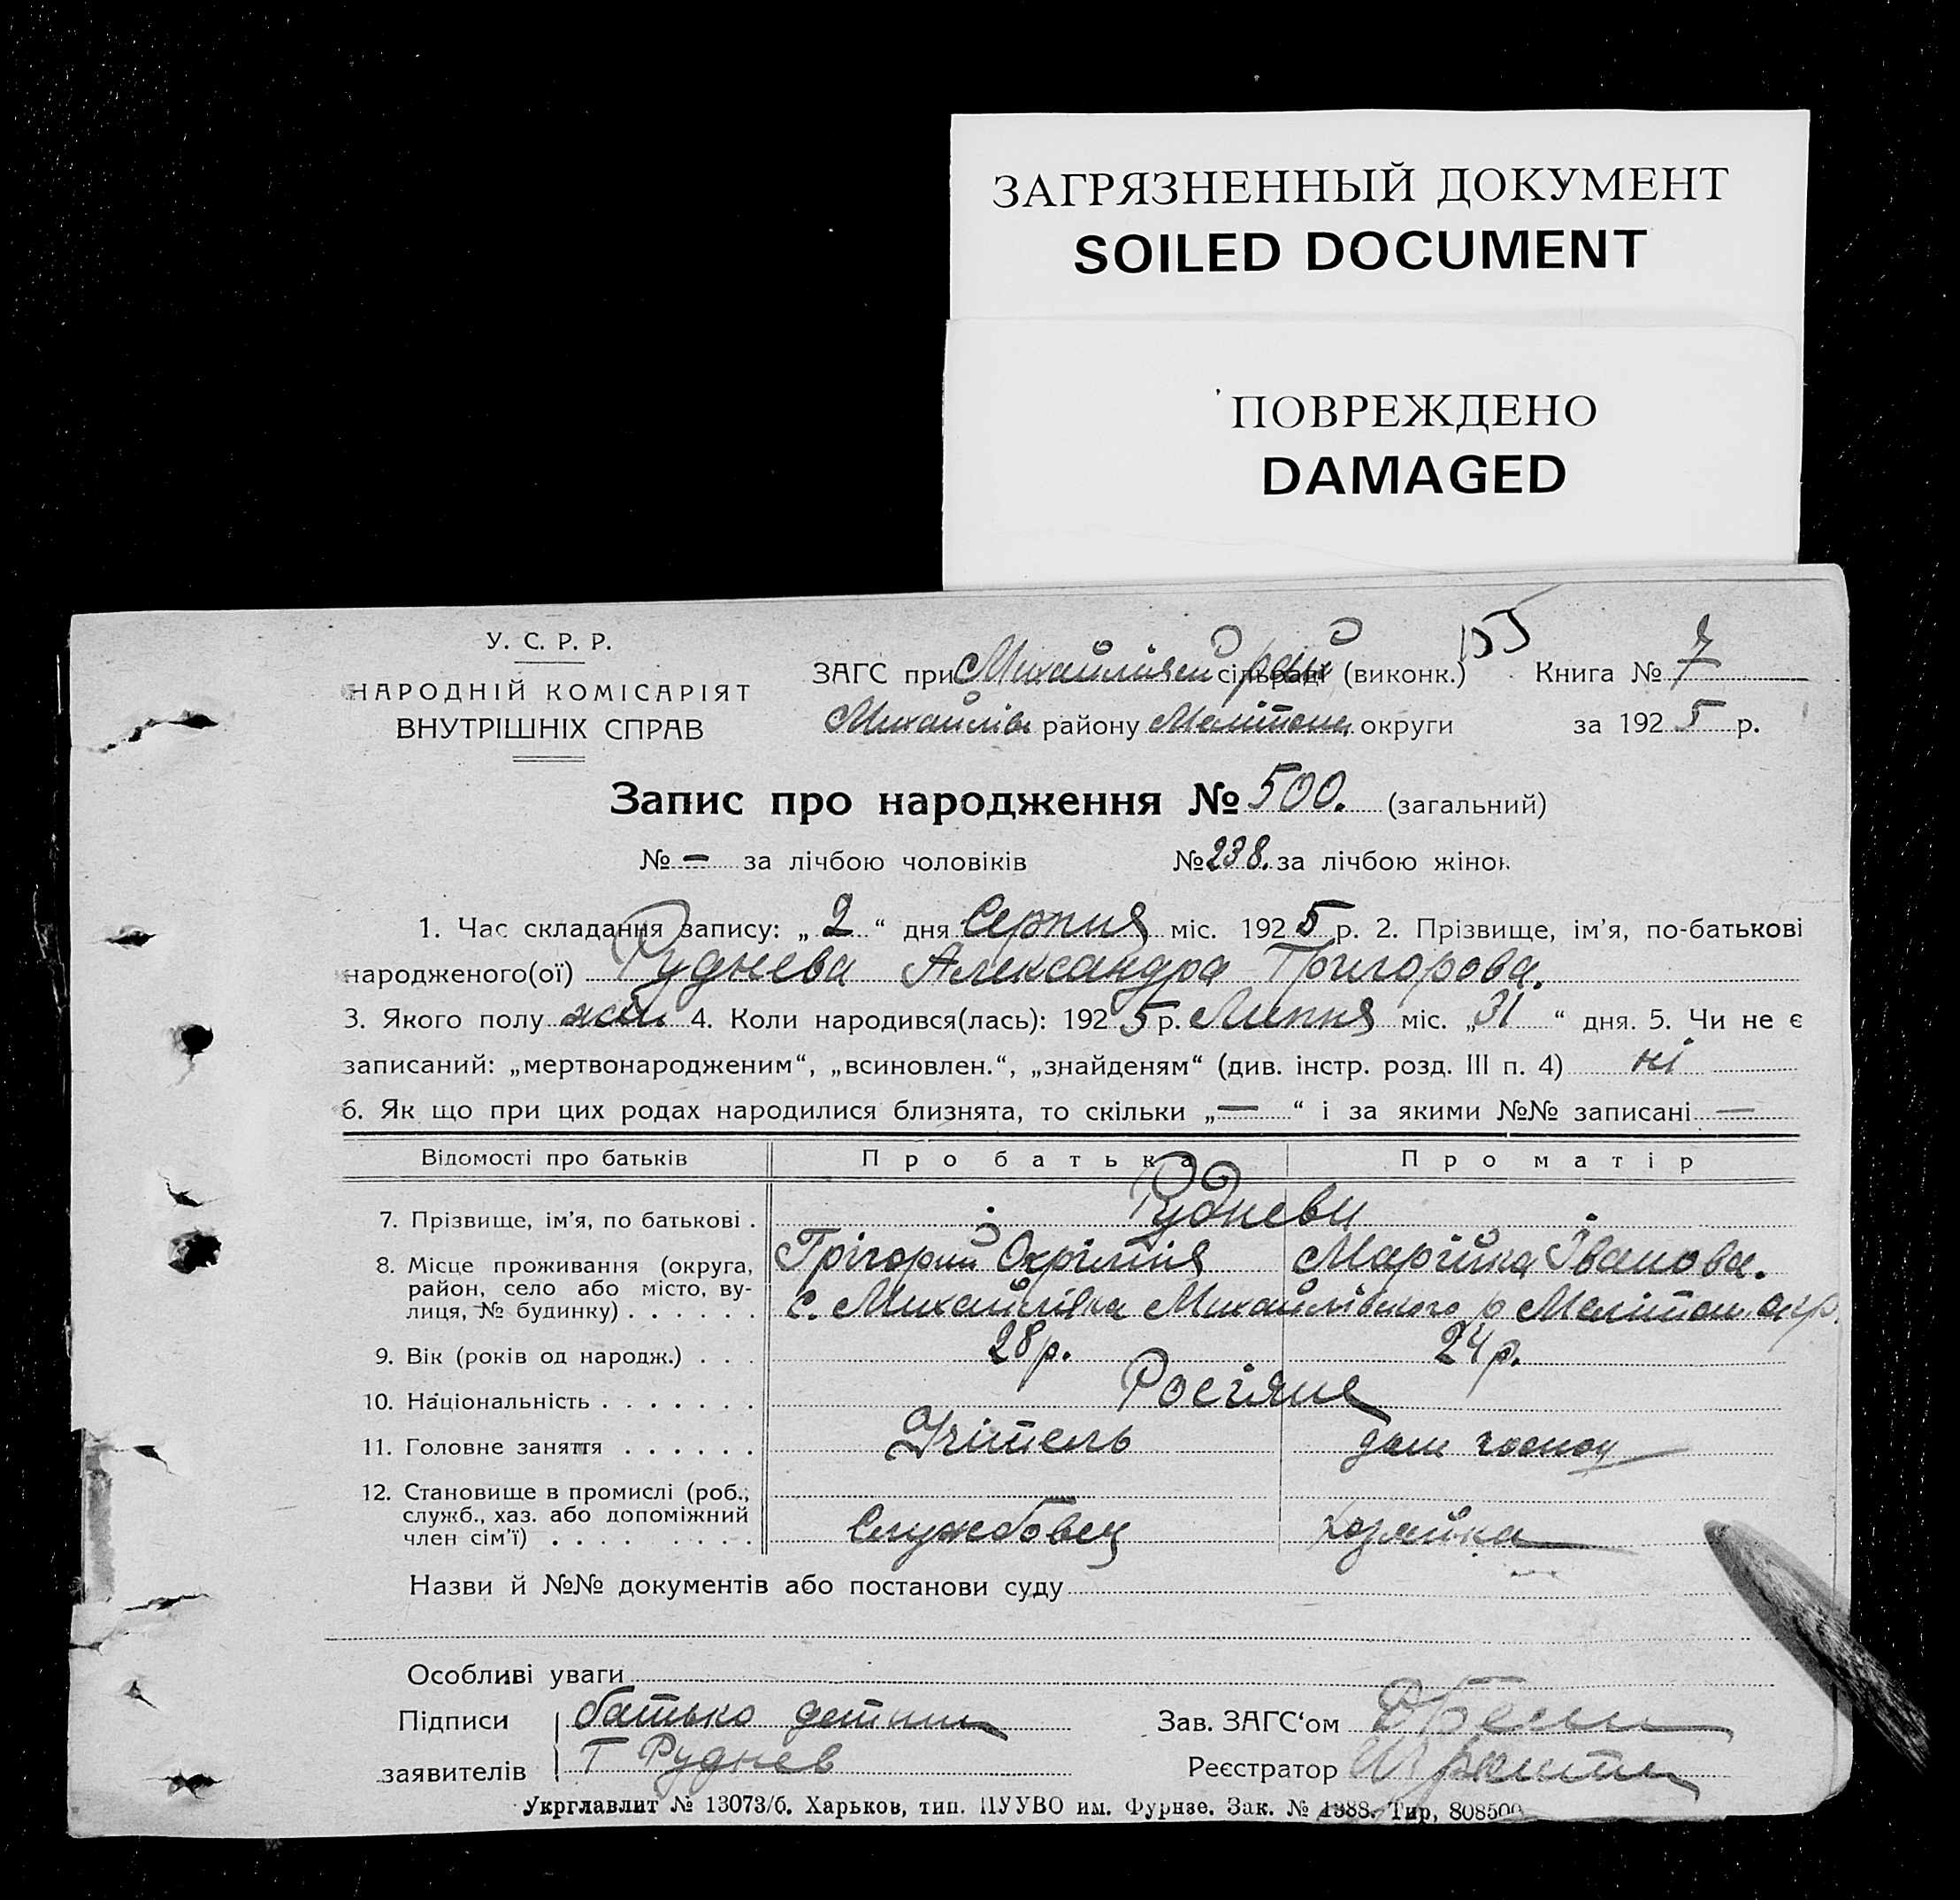 ЗАГРЯЗНЕННЫЙ ДОКУМЕНТ
SOILED DOCUMENT
ПОВРЕЖДЕНО
DAMAGED
У. С. Р. Р.
НАРОДНІЙ КОМІСАРІЯТ
ВНУТРІШНІХ СПРАВ
155
ЗАГС при сільраді (виконк.) Книга № 7
Михайлів. району Мелітоп. округи за 1925 р.
Запис про народження № 500. (загальний)
№ — за лічбою чоловіків № 238. за лічбою жінок
1. Час складання запису: „2“ дня Серпня міс. 1925 р. 2. Прізвище, ім'я, по-батькові
народженого(ої) Руднева Александра Григорова.
3. Якого полу жін. 4. Коли народився(лась): 1925 р. Липня міс. „31“ дня. 5. Чи не є
записаний: „мертвонародженим“, „всиновлен.“, „знайденям“ (див. інстр. розд. III п. 4) ні
6. Як що при цих родах народилися близнята, то скільки „—“ і за якими №№ записані —
Відомості про батьків Про батька Про матір
7. Прізвище, ім'я, по батькові . Рудневи
Грігорий Марійка Іванова.
8. Місце проживання (округа,
район, село або місто, ву-
лиця, № будинку) . . . . . . с. Михайлівка Михайлівского р Мелітоп. окр.
9. Вік (років од народж.) . . . 28 р. 24 р.
10. Національність . . . . . . . Росіяне
11. Головне заняття . . . . . . Учітель дом госпои
12. Становище в промислі (роб.,
служб., хаз. або допоміжний
член сім'ї) . . . . . . . . Службовец хозяйка
Назви й №№ документів або постанови суду
Особливі уваги
Підписи батько детини Зав. ЗАГС'ом
заявителів Г Руднев Реєстратор
Укрглавлит № 13073/б. Харьков, тип. ПУУВО им. Фурнзе. Зак. № 1388. Тир, 808500